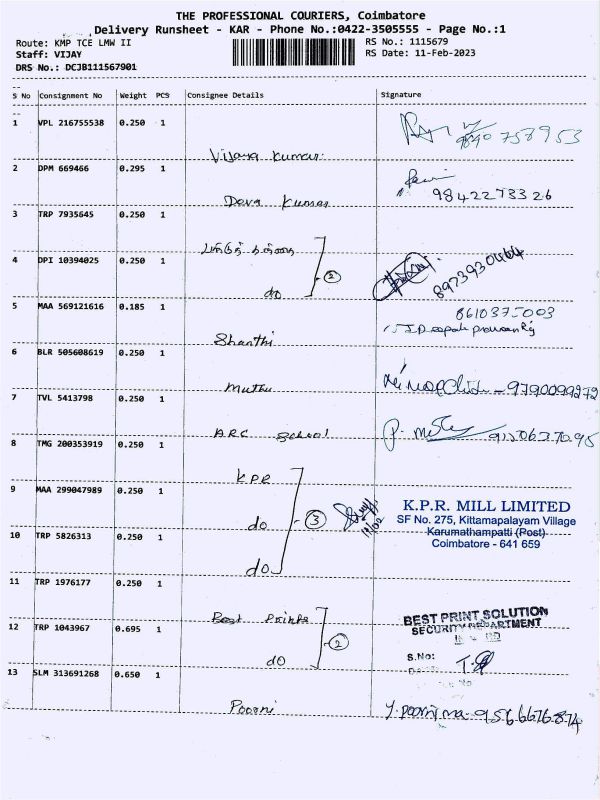 THE PROFESSIONAL COURIERS, Coimbatore
Delivery Runsheet - KAR - Phone No.:0422-3505555 - Page No.:1
Route: KMP TCE LMW II
RS No.: 1115679
Staff: VIJAY
RS Date: 11-Feb-2023
DRS No.: DCJB111567901
S No Consignment No Weight PCS Consignee Details Signature
1 VPL 216755538 0.250 1
Vijaya Kumar
758953
2 DPM 669466 0.295 1
Deva Kumar
9842273326
3 TRP 7935645 0.250 1
4 DPI 10394025 0.250 1
do
2
8973930464
5 MAA 569121616 0.185 1
Shanthi
8610375003
6 BLR 505608619 0.250 1
Muthu
9790099272
7 TVL 5413798 0.250 1
ARC School
8 TMG 200353919 0.250 1
KPR
9 MAA 299047989 0.250 1
do
3
K.P.R. MILL LIMITED
SF No. 275, Kittamapalayam Village
Karumathampatti (Post)
Coimbatore - 641 659
10 TRP 5826313 0.250 1
do
11 TRP 1976177 0.250 1
Best
12 TRP 1043967 0.695 1
do
2
BEST PRINT SOLUTION
SECURITY DEPARTMENT
S.No:
13 SLM 313691268 0.650 1
Poorni
Y. Poornima - 9566676874